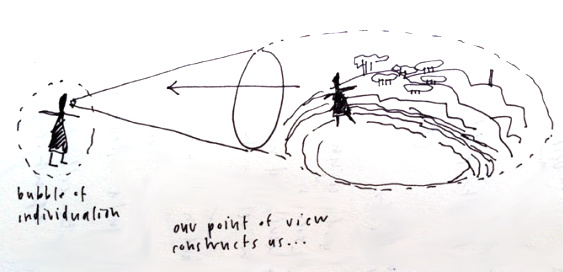 bubble of
individuation
our point of view
constructs us...